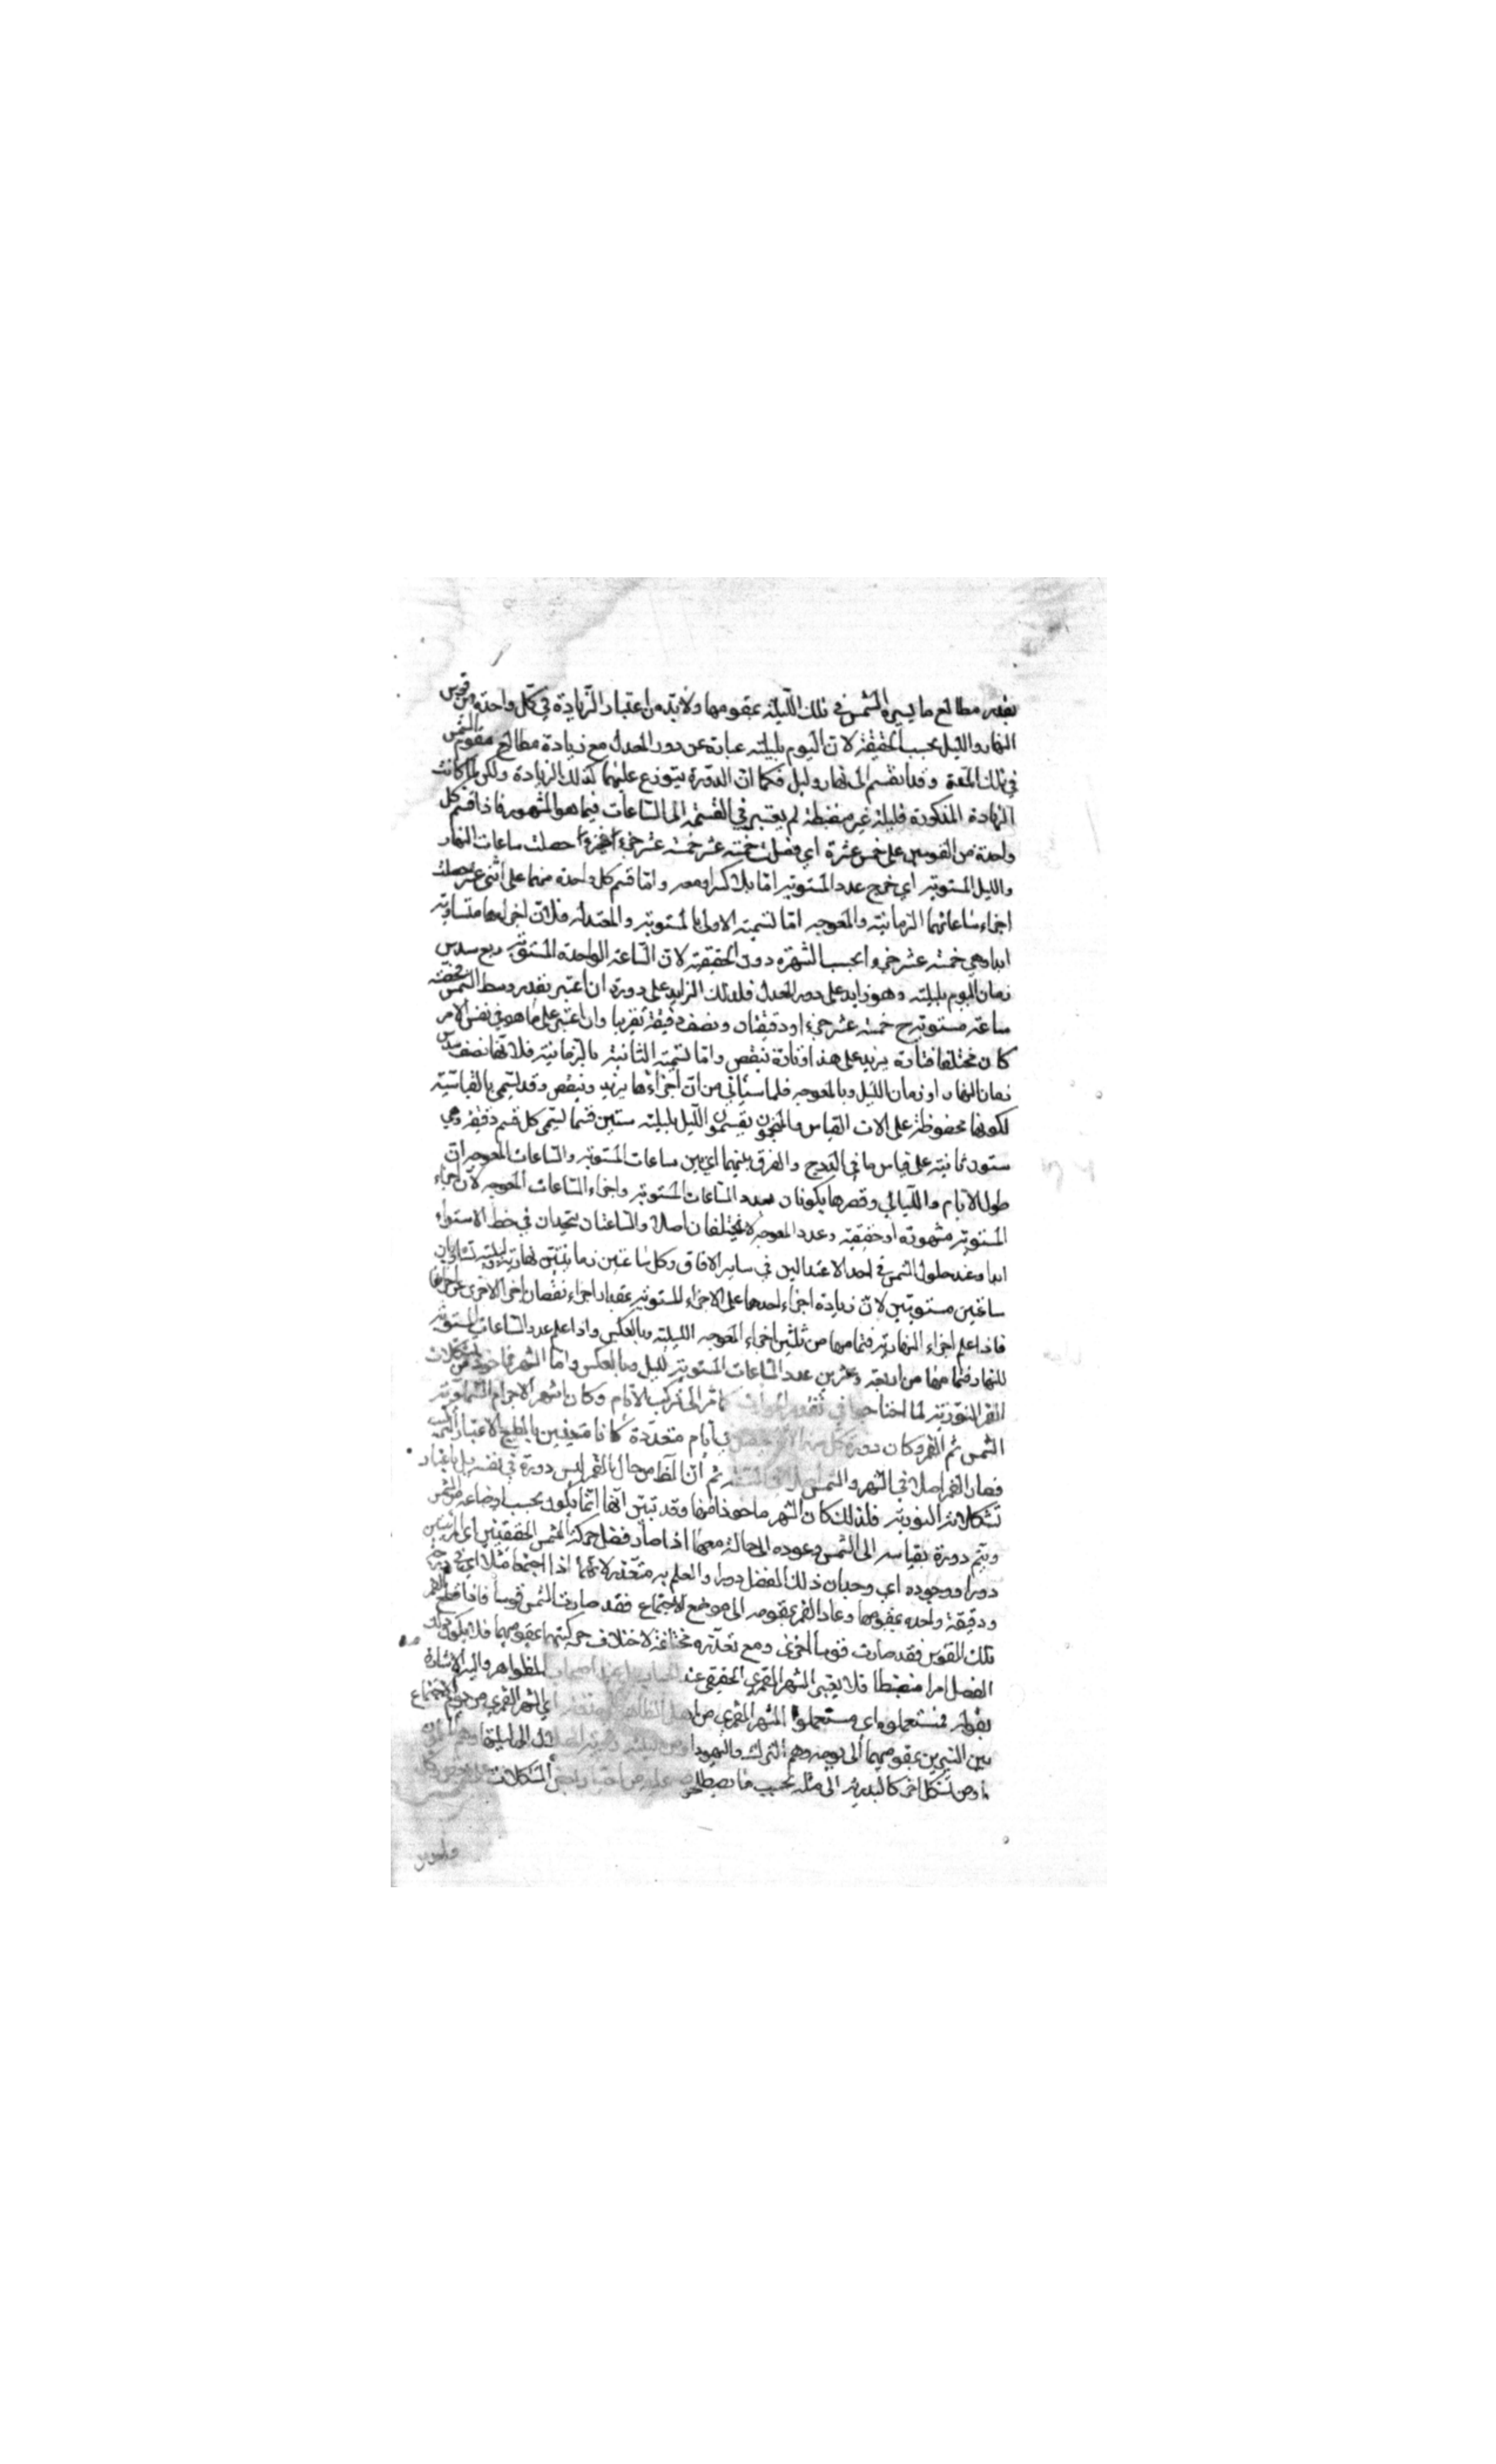 بقدر مطالع ما يسيره الشمس في تلك الليلة بمقومها ولابد من اعتبار الزيادة في كل واحدة من قوس
النهار والليل بحسب الحقيقة لان اليوم بليلته عبارة عن دور المعدل مع زيادة مطالع مقوم الشمس
في تلك المدة وقد انقسم الى نهار وليل فكما ان الدورة يتوزع عليهما كذلك الزيادة ولكن لما كانت
الزيادة المذكورة قليلة غير منضبطة لم يعتبر في القسمة الى الساعات فيما هو المشهور فاذا قسم كل
واحدة من القوسين على خمس عشرة اي فصلت خمسة عشر خمسة عشر جزءا حصلت ساعات النهار
والليل المستوية اي خرج عدد المستوية اما بلا كسر او معه واما قسم كل واحدة منهما على اثنى عشر حصلت
اجزاء ساعاتهما الزمانية والمعوجه اما تسمية الاولى بالمستوية والمعتدلة فلان اجزاءها متساوية
ابدا وهي خمسة عشر جزءا بحسب الشهرة دون الحقيقة لان الساعة الواحدة المستوية ربع سدس
زمان اليوم بليلته وهو زايد على دور المعدل فلذلك الزايد على دورة ان اعتبر بقدر وسط الشمس فحصته
ساعة مستوية ح خمسة عشر جزءا ودقيقتان ونصف دقيقة تقريبا وان اعتبر على ما هو في نفس الامر
كان مختلفا فتارة يزيد على هذا وتارة ينقص واما تسمية الثانية بالزمانية فلانها نصف سدس
زمان النهار او زمان الليل وبالمعوجه فلما سيأتي من ان اجزاءها يزيد وينقص وقد تسمى بالقياسية
لكونها محفوظة على الات القياس والمنجمون يقسمون الليل بليلته ستين قسما يسمى كل قسم دقيقة وهي
ستون ثانية على قياس ما في الدرج والفرق بينهما اي بين ساعات المستوية والساعات المعوجه ان
طول الايام والليالي وقصرها يكونان بعدد الساعات المستوية واجزاء الساعات المعوجه لان اجزاء
المستوية مشهورة او حقيقية وعدد المعوجه لا يختلفان اصلا والساعتان يتحدان في خط الاستواء
ابدا وعند حلول الشمس في احد الاعتدالين في ساير الافاق وكل ساعتين زمانيتين نهارية وليلية تساويان
ساعتين مستويتين لان زيادة اجزاء احدهما على الاجزاء المستوية بمقدار اجزاء نقصان اجزاء الاخرى عن اجزائها
فاذا علم اجزاء النهارية فتمامها من ثلثين اجزاء المعوجه الليلية وبالعكس واذا علم عدد الساعات المستوية
للنهار فتمامها من اربعة وعشرين عدد الساعات المستوية لليل وبالعكس واما الشهر فماخوذ من تشكلات
القمر النورية لما احتاجوا في تقدير كما مر الى تركيب الايام وكان اشهر الاجرام السماوية
الشمس ثم القمر وكان دورة كل منهما في ايام متعددة كانا متعينين بالطبع لاعتبار
فصار القمر اصلا في الشهر والشمس اصلا في السنة ثم ان الظاهر من حال القمر ليس دورة في نفسه بل باعتبار
تشكلاته النورية فلذلك كان الشهر ماخوذا منها وقد تبين انها انما يكون بحسب اوضاعه من الشمس
ويتم دورة بقياسه الى الشمس وعوده الى حالة معها اذا صار فضل حركة الشمس الحقيقيتين اي
دورا ووجوده اي وجدان ذلك الفضل دورا والعلم به متعذر لانهما اذا اجتمعا مثلا اي في جزء
ودقيقة واحدة بمقومهما وعاد القمر بمقومه الى موضع الاجتماع فقد صارت الشمس قوسا فاذا قطع القمر
تلك القوس فقد صارت قوسا اخرى ومع تعذره مختلفة لاختلاف حركتيهما بمقومهما فلا يكون ذلك
الفضل امرا منضبطا فلا يعتبر الشهر القمري الحقيقي عند اصحاب الظواهر واليه الاشارة
بقوله فمستعملوه اي مستعملوا الشهر القمري من اهل الظاهر اي الشهر القمري من يوم الاجتماع
بين النيرين بمقومهما الى يومه وهم الترك واليهود او من ليلة رؤية الهلال الى ليلتها وهم
او من شكل اخر كالبدرية الى مثله بحسب ما يصطلح عليه من اختيار بعض التشكلات